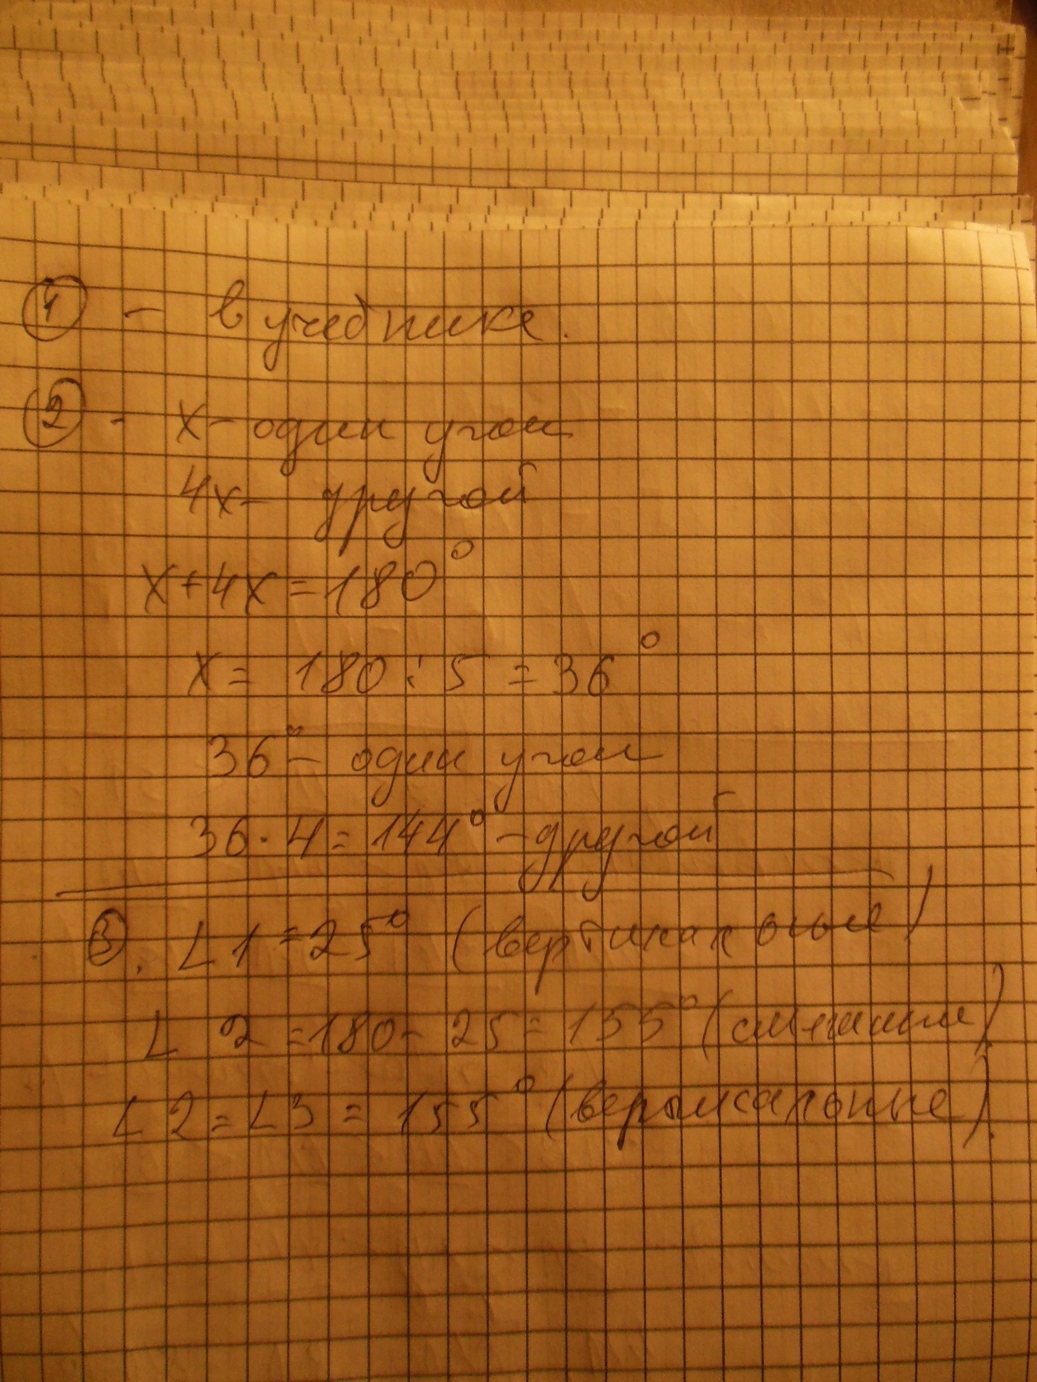 1 - в учебнике.
2 - x - один угол
4x - другой
x + 4x = 180°
x = 180 : 5 = 36°
36° - один угол
36 · 4 = 144° - другой
3. ∠1 = 25° (вертикальные)
∠2 = 180 - 25 = 155° (смежные)
∠2 = ∠3 = 155° (вертикальные).